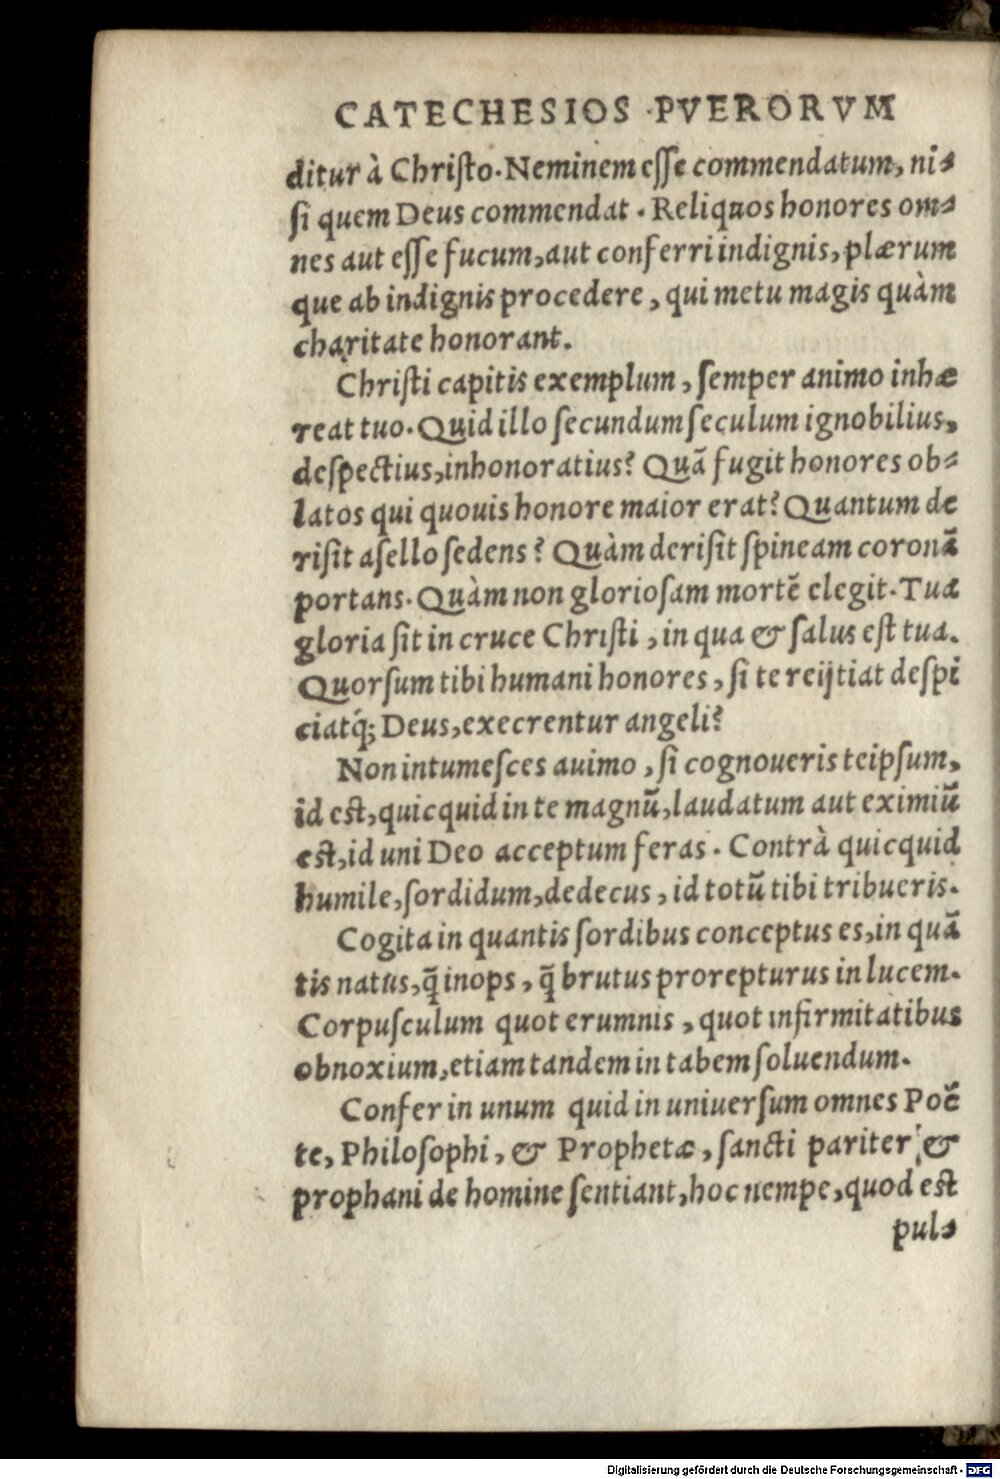 CATECHESIOS PVERORVM
ditur à Christo. Neminem esse commendatum, ni-
si quem Deus commendat. Reliquos honores om-
nes aut esse fucum, aut conferri indignis, plærum
que ab indignis procedere, qui metu magis quàm
charitate honorant.
Christi capitis exemplum, semper animo inhæ
reat tuo. Quid illo secundum seculum ignobilius,
despectius, inhonoratius? Quã fugit honores ob-
latos qui quouis honore maior erat? Quantum de
risit asello sedens? Quàm derisit spineam coronã
portans. Quàm non gloriosam mortẽ elegit. Tua
gloria sit in cruce Christi, in qua & salus est tua.
Quorsum tibi humani honores, si te reijtiat despi
ciatq́; Deus, execrentur angeli?
Non intumesces auimo, si cognoueris teipsum,
id est, quicquid in te magnũ, laudatum aut eximiũ
est, id uni Deo acceptum feras. Contrà quicquid
humile, sordidum, dedecus, id totũ tibi tribueris.
Cogita in quantis sordibus conceptus es, in quã
tis natus, q̃ inops, q̃ brutus prorepturus in lucem.
Corpusculum quot erumnis, quot infirmitatibus
obnoxium, etiam tandem in tabem soluendum.
Confer in unum quid in uniuersum omnes Poë
te, Philosophi, & Prophetæ, sancti pariter &
prophani de homine sentiant, hoc nempe, quod est
pul-
Digitalisierung gefördert durch die Deutsche Forschungsgemeinschaft - DFG